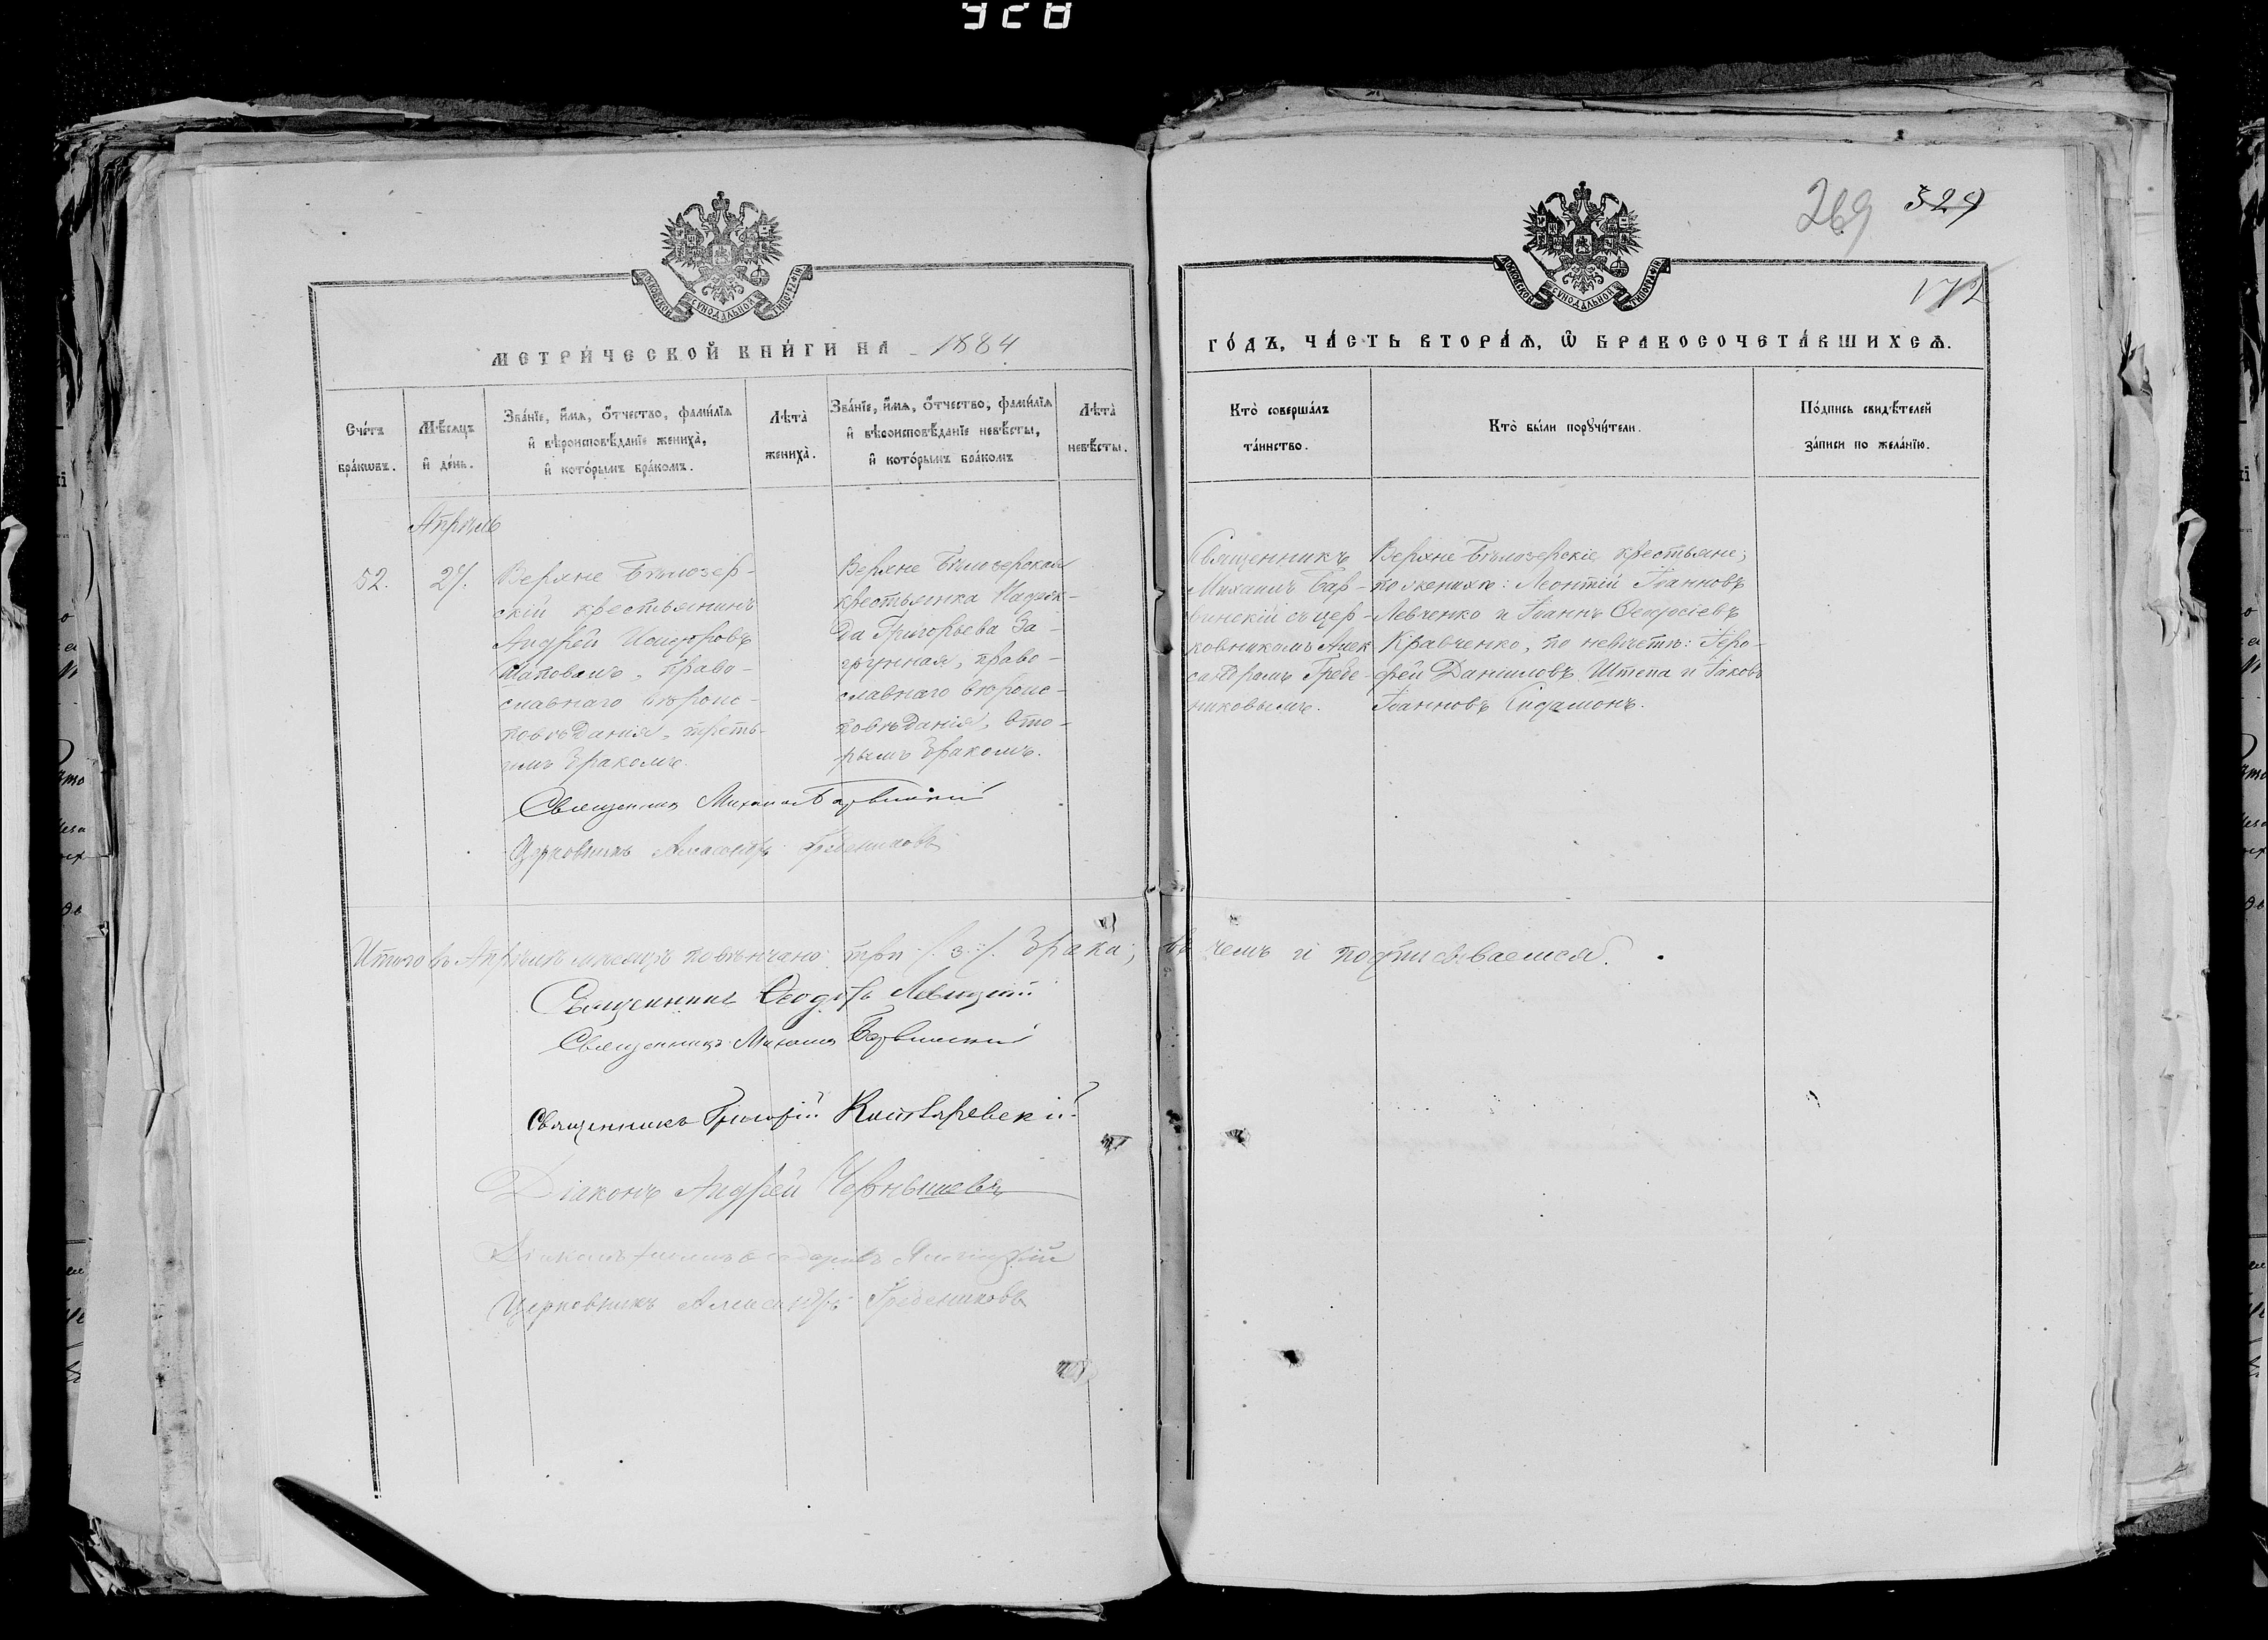 928
269 329
172
МОСКОВСКОЙ СУНОДАЛЬНОЙ ТИПОГРАФІИ
МОСКОВСКОЙ СУНОДАЛЬНОЙ ТИПОГРАФІИ
МЕТРИ́ЧЕСКОЙ КНИ́ГИ НА 1884
ГО́ДЪ, ЧА́СТЬ ВТОРА́Ѧ, Ѿ БРАКОСОЧЕТА́ВШИХСѦ.
Сче́тъ
бра́кѡвъ.
Мѣ́сѧцъ
и҆ де́нь.
Зва́нїе, и҆́мѧ, ѻ҆́тчество, фами́лїѧ
и҆ вѣроисповѣ́данїе жениха̀,
и҆ кото́рымъ бра́комъ.
Лѣта̀
жениха̀.
Зва́нїе, и҆́мѧ, ѻ҆́тчество, фами́лїѧ
и҆ вѣроисповѣ́данїе невѣ́сты,
и҆ кото́рымъ бра́комъ
Лѣта̀
невѣ́сты.
Кто̀ соверша́лъ
та́инство.
Кто̀ бы́ли порꙋчи́тели.
По́дпись свидѣ́телей
за́писи по жела́нїю.
Апрѣль
52.
27.
Верхне Бѣлозер-
скій крестьянинъ
Андрей Исидоровъ
Шаповалъ, право-
славнаго вѣроис-
повѣданія, треть-
имъ бракомъ.
Верхне Бѣлозерская
крестьянка Надеж-
да Григорьева За-
право-
славнаго вѣроис-
повѣданія, вто-
рымъ бракомъ.
Священникъ
Михаилъ Бар-
винскій съ цер-
ковникомъ Алек
сандромъ Гребе-
никовымъ.
Верхне Бѣлозерскіе крестьяне;
по женихѣ: Леонтій Іоанновъ
Левченко и Іоаннъ Ѳеодосіевъ
Кравченко, по невѣстѣ: Іеро-
фей Даниловъ Штепа и Іаковъ
Іоанновъ
Священникъ Михаилъ Барвинскій
Церковникъ Александръ Гребениковъ
Итого въ Апрѣлѣ мѣсяцѣ повѣнчано три /.3./. брака; въ чемъ и подписываемся.
Священникъ Ѳеодоръ Левицкій
Священникъ Михаилъ Барвинскій
Священникъ Григорій Контаревскій
Діаконъ Андрей Чернышевъ
Церковникъ Александръ Гребениковъ